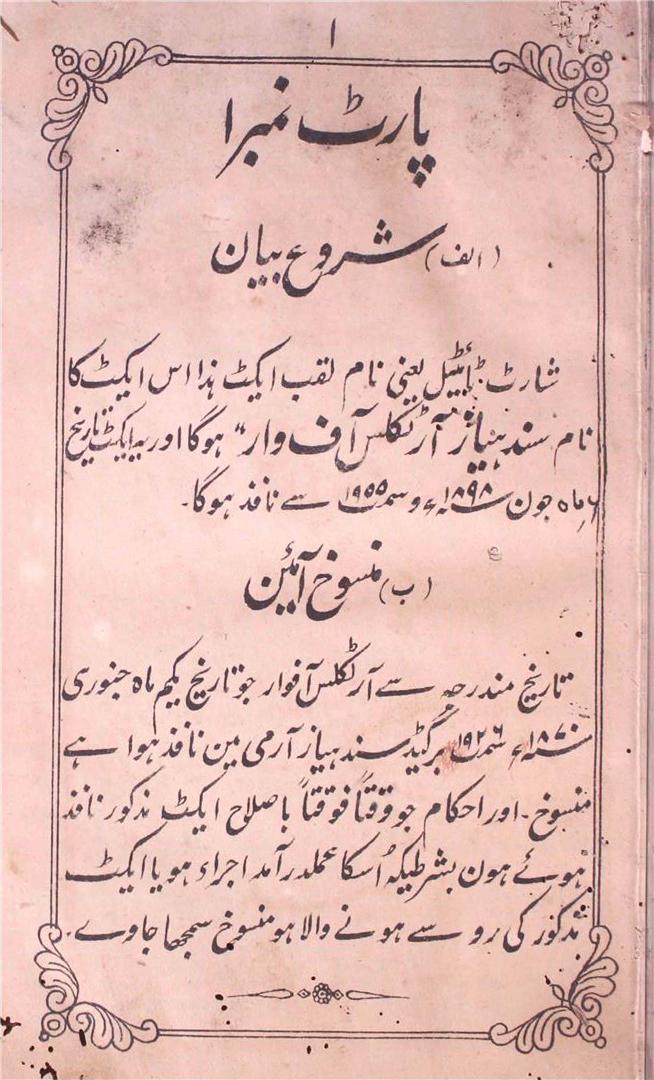 ۱
پارٹ نمبر ۱
(الف) شروع بیان
شارٹ ٹائیٹل یعنی نام لقب ایکٹ ہذا اس ایکٹ کا
نام سندہیاز آرٹکلس آف وار" ہوگا اور یہ ایکٹ تاریخ
۶ ماہ جون سنہ ۱۸۹۸ء و سمت ۱۹۵۵ سے نافذ ہوگا۔
(ب) منسوخ آئین
تاریخ مندرجہ سے آرٹکلس آفوار جو تاریخ یکم ماہ جنوری
سنہ ۱۸۷۰ء سمت ۱۹۲۶ برگیڈ سندہیاز آرمی مین نافذ ہوا ہے
منسوخ۔ اور احکام جو وقتاً فوقتاً باصلاح ایکٹ مذکور نافذ
ہوئے ہون بشرطیکہ اُسکا عملدرآمد اجراء ہو یا ایکٹ
مذکور کی رو سے ہونے والا ہو منسوخ سمجھا جاوے۔